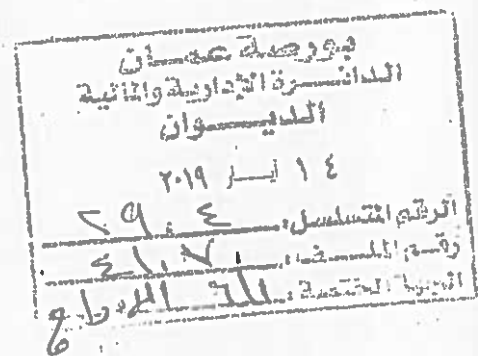 بورصة عمان
الدائسرة الإدارية والمالية
الديسوان
١٤ أيسر ٢٠١٩
الرقم المتسلسل: ٢٩٠٤
رقم الملف: ٤١٠٧٠
الجهة المختصة: الإدراج